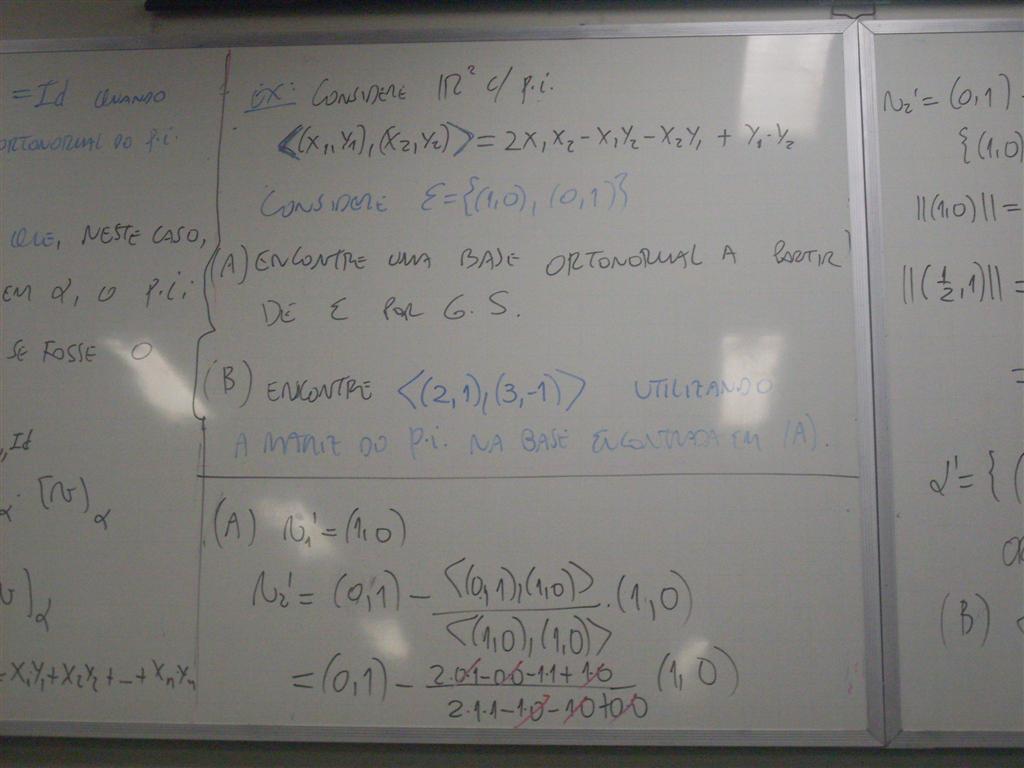 =Id QUANDO
ORTONORMAL DO p.i.
QUE, NESTE CASO,
EM α, O p.i.
SE FOSSE O
,Id
α · [v]α
v]α
=X₁Y₁+X₂Y₂+...+XₙYₙ
EX: CONSIDERE ℝ² c/ p.i.
<(X₁,Y₁),(X₂,Y₂)> = 2X₁X₂-X₁Y₂-X₂Y₁+Y₁·Y₂
CONSIDERE ε={(1,0),(0,1)}
(A) ENCONTRE UMA BASE ORTONORMAL A PARTIR
DE ε POR G.S.
(B) ENCONTRE <(2,1),(3,-1)> UTILIZANDO
A MATRIZ DO p.i. NA BASE ENCONTRADA EM (A).
(A) v₁'=(1,0)
v₂'=(0,1)-<(0,1),(1,0)>/<(1,0),(1,0)>·(1,0)
=(0,1)-(2.0.1-0.0-1.1+1.0)/(2.1.1-1.0-1.0+0.0) (1,0)
v₂'=(0,1)-
{(1,0)
||(1,0)||=
||(1/2,1)||=
=
α'={(
(B) <